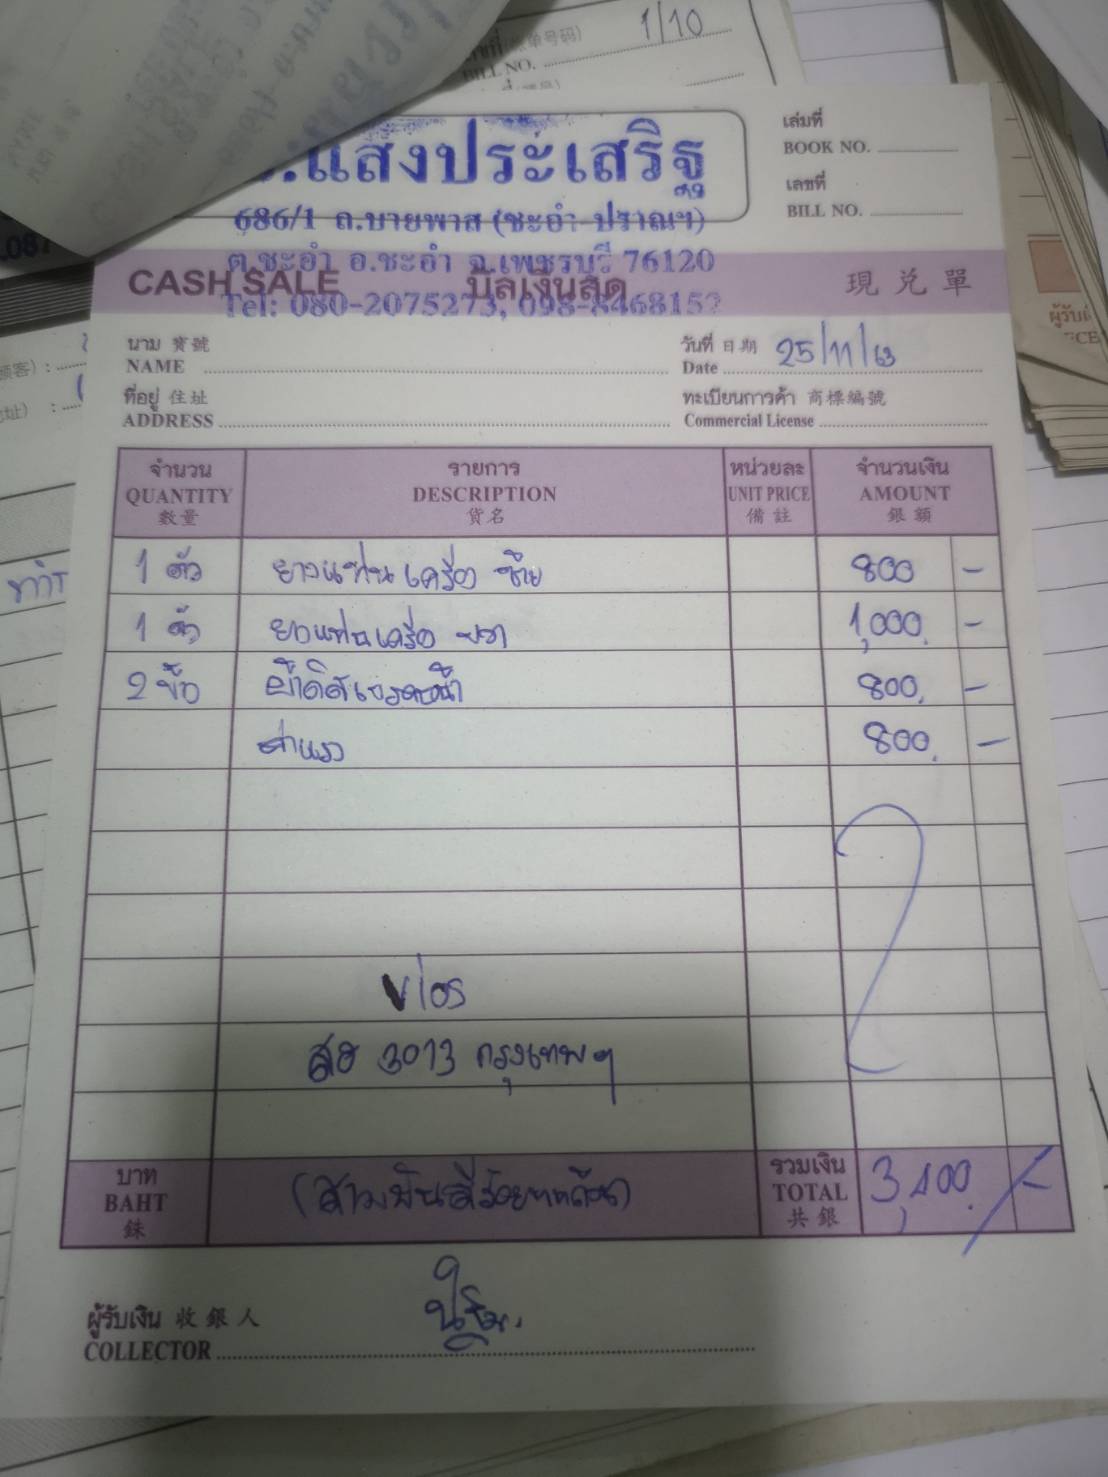 1/10
BILL NO.
.แสงประเสริฐ
686/1 ถ.บายพาส (ชะอำ-ปราณฯ)
ต.ชะอำ อ.ชะอำ จ.เพชรบุรี 76120
Tel: 080-2075273, 098-8468152
เล่มที่
BOOK NO.
เลขที่
BILL NO.
CASH SALE บิลเงินสด 現兌單
นาม 寶號
NAME
วันที่ 日期 25/11/63
Date
ที่อยู่ 住址
ADDRESS
ทะเบียนการค้า 商標編號
Commercial License
จำนวน รายการ หน่วยละ จำนวนเงิน
QUANTITY DESCRIPTION UNIT PRICE AMOUNT
數量 貨名 備註 銀額
1 ตัว ยางแท่นเครื่อง ซ้าย 800 -
1 ตัว ยางแท่นเครื่อง ขวา 1,000 -
2 ข้อ ผ้าดิสเบรคหน้า 800 -
ค่าแรง 800 -
Vios
3013 กรุงเทพฯ
บาท
BAHT
銖
(สามพันสี่ร้อยบาทถ้วน)
รวมเงิน
TOTAL
共銀
3,400 -
ผู้รับเงิน 收銀人
COLLECTOR